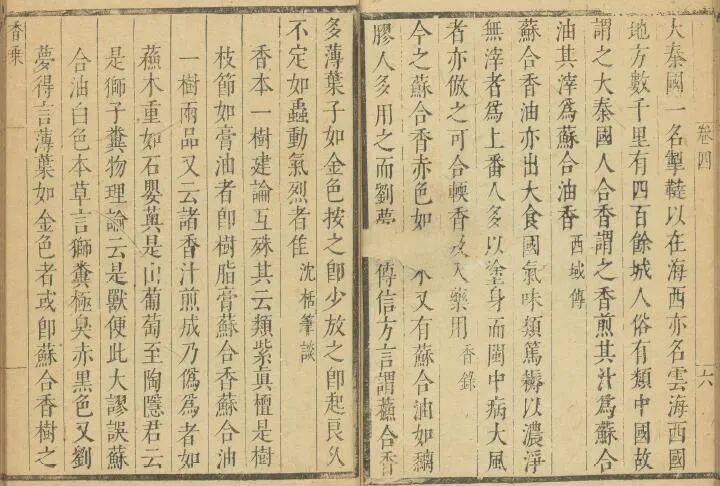 卷四
六
大秦國一名掣韃以在海西亦名雲海西國
地方數千里有四百餘城人俗有類中國故
謂之大秦國人合香謂之香煎其汁為蘇合
油其滓為蘇合油香 西域傳
蘇合香油亦出大食國氣味類篤耨以濃淨
無滓者為上番人多以塗身而閩中病大風
者亦倣之可合軟香及入藥用 香錄
今之蘇合香赤色如 木又有蘇合油如黐
膠人多用之而劉夢 傳信方言謂蘇合香
多薄葉子如金色按之卽少放之卽起良久
不定如蟲動氣烈者佳 沈括筆談
香本一樹建論互殊其云類紫真檀是樹
枝節如膏油者卽樹脂膏蘇合香蘇合油
一樹兩品又云諸香汁煎成乃偽為者如
蘇木重如石嬰薁是山葡萄至陶隱君云
是獅子糞物理論云是獸便此大謬誤蘇
合油白色本草言獅糞極臭赤黑色又劉
夢得言薄葉如金色者或卽蘇合香樹之
香乘